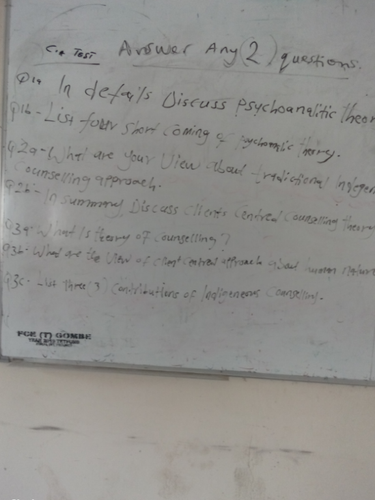 C.A TEST Answer Any (2) questions.
Q1a In details Discuss psychoanalitic theor
Q1b - List four short coming of psychoanalitic theory.
Q2a - What are your View about traditional Indigen
counselling approach.
Q2b - In summary, Discuss clients Centred Counselling theory
Q3a - What is theory of counselling?
Q3b - What are the View of client central approach about human nature
Q3c - List three (3) Contributions of Indigeneous Counselling.
FCE (T) GOMBE